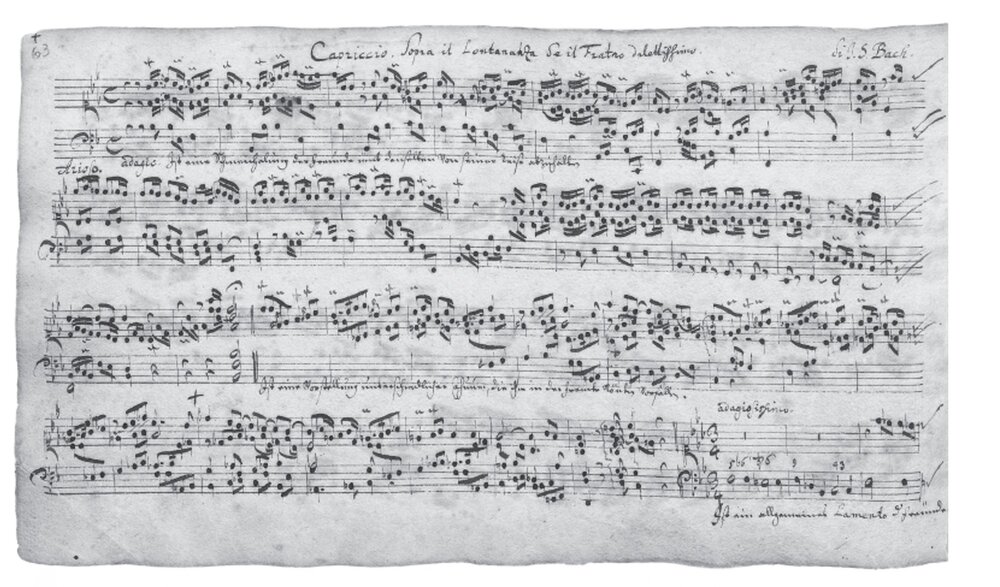 63
Capriccio. Sopra il Lontananza de il Fratro dilettissimo. di J. S. Bach.
Arioso. adagio. Ist eine Schmeichelung der Freunde um denselben von seiner Reise abzuhalten.
Ist eine Vorstellung unterschiedlicher Casuum, die ihm in der Frembde könten vorfallen.
adagissimo.
Ist ein allgemeines Lamento der Freunde